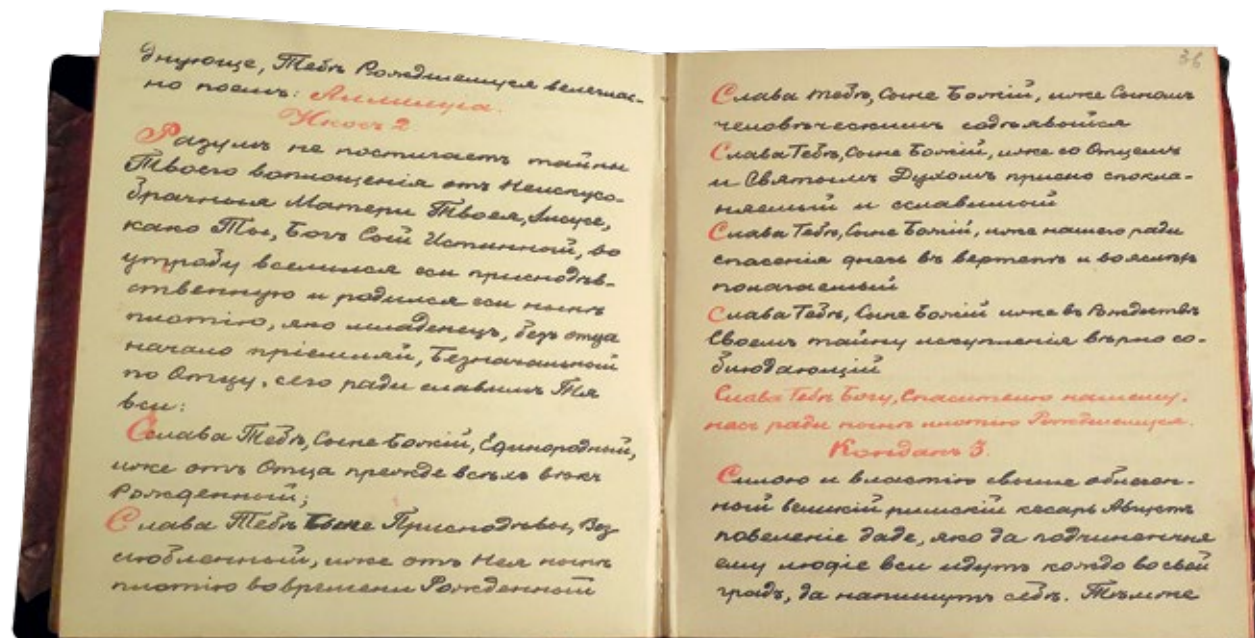 днующе, Тебѣ Рождшемуся велеглас-
но поемъ: Аллилуіа.
Икосъ 2
Разумъ не постигаетъ тайны
Твоего воплощенія отъ Неискусо-
брачныя Матери Твоея, Іисусе,
како Ты, Богъ Сый Истинный, во
утробу вселился еси приснодѣв-
ственную и родился еси нынѣ
плотію, яко младенецъ, безъ отца
начало пріемляй, Безначальный
по Отцу, сего ради славимъ Тя
вси:
Слава Тебѣ, Сыне Божій, Единородный,
иже отъ Отца прежде всѣхъ вѣкъ
Рожденный;
Слава Тебѣ Сыне Приснодѣвы, Воз
любленный, иже отъ Нея нынѣ
плотію во времени Рожденный
36
Слава тебѣ, Сыне Божій, иже Сыномъ
человѣческимъ содѣявыйся
Слава Тебѣ, Сыне Божій, иже со Отцемъ
и Святымъ Духомъ присно спокла-
няемый и сславимый
Слава Тебѣ, Сыне Божій, иже нашего ради
спасенія днесь въ вертепѣ и во яслѣхъ
полагаемый
Слава Тебѣ, Сыне Божій иже въ Рождествѣ
Своемъ тайну искупленія вѣрно со-
блюдающій
Слава Тебѣ Богу, Спасителю нашему,
насъ ради нынѣ плотію Рождшемуся.
Кондакъ 3.
Силою и властію свыше облечен-
ный великій римскій кесарь Августъ
повеленіе даде, яко да подчиненныя
ему людіе вси идутъ кождо во свой
градъ, да напишутъ себѣ. Тѣмже